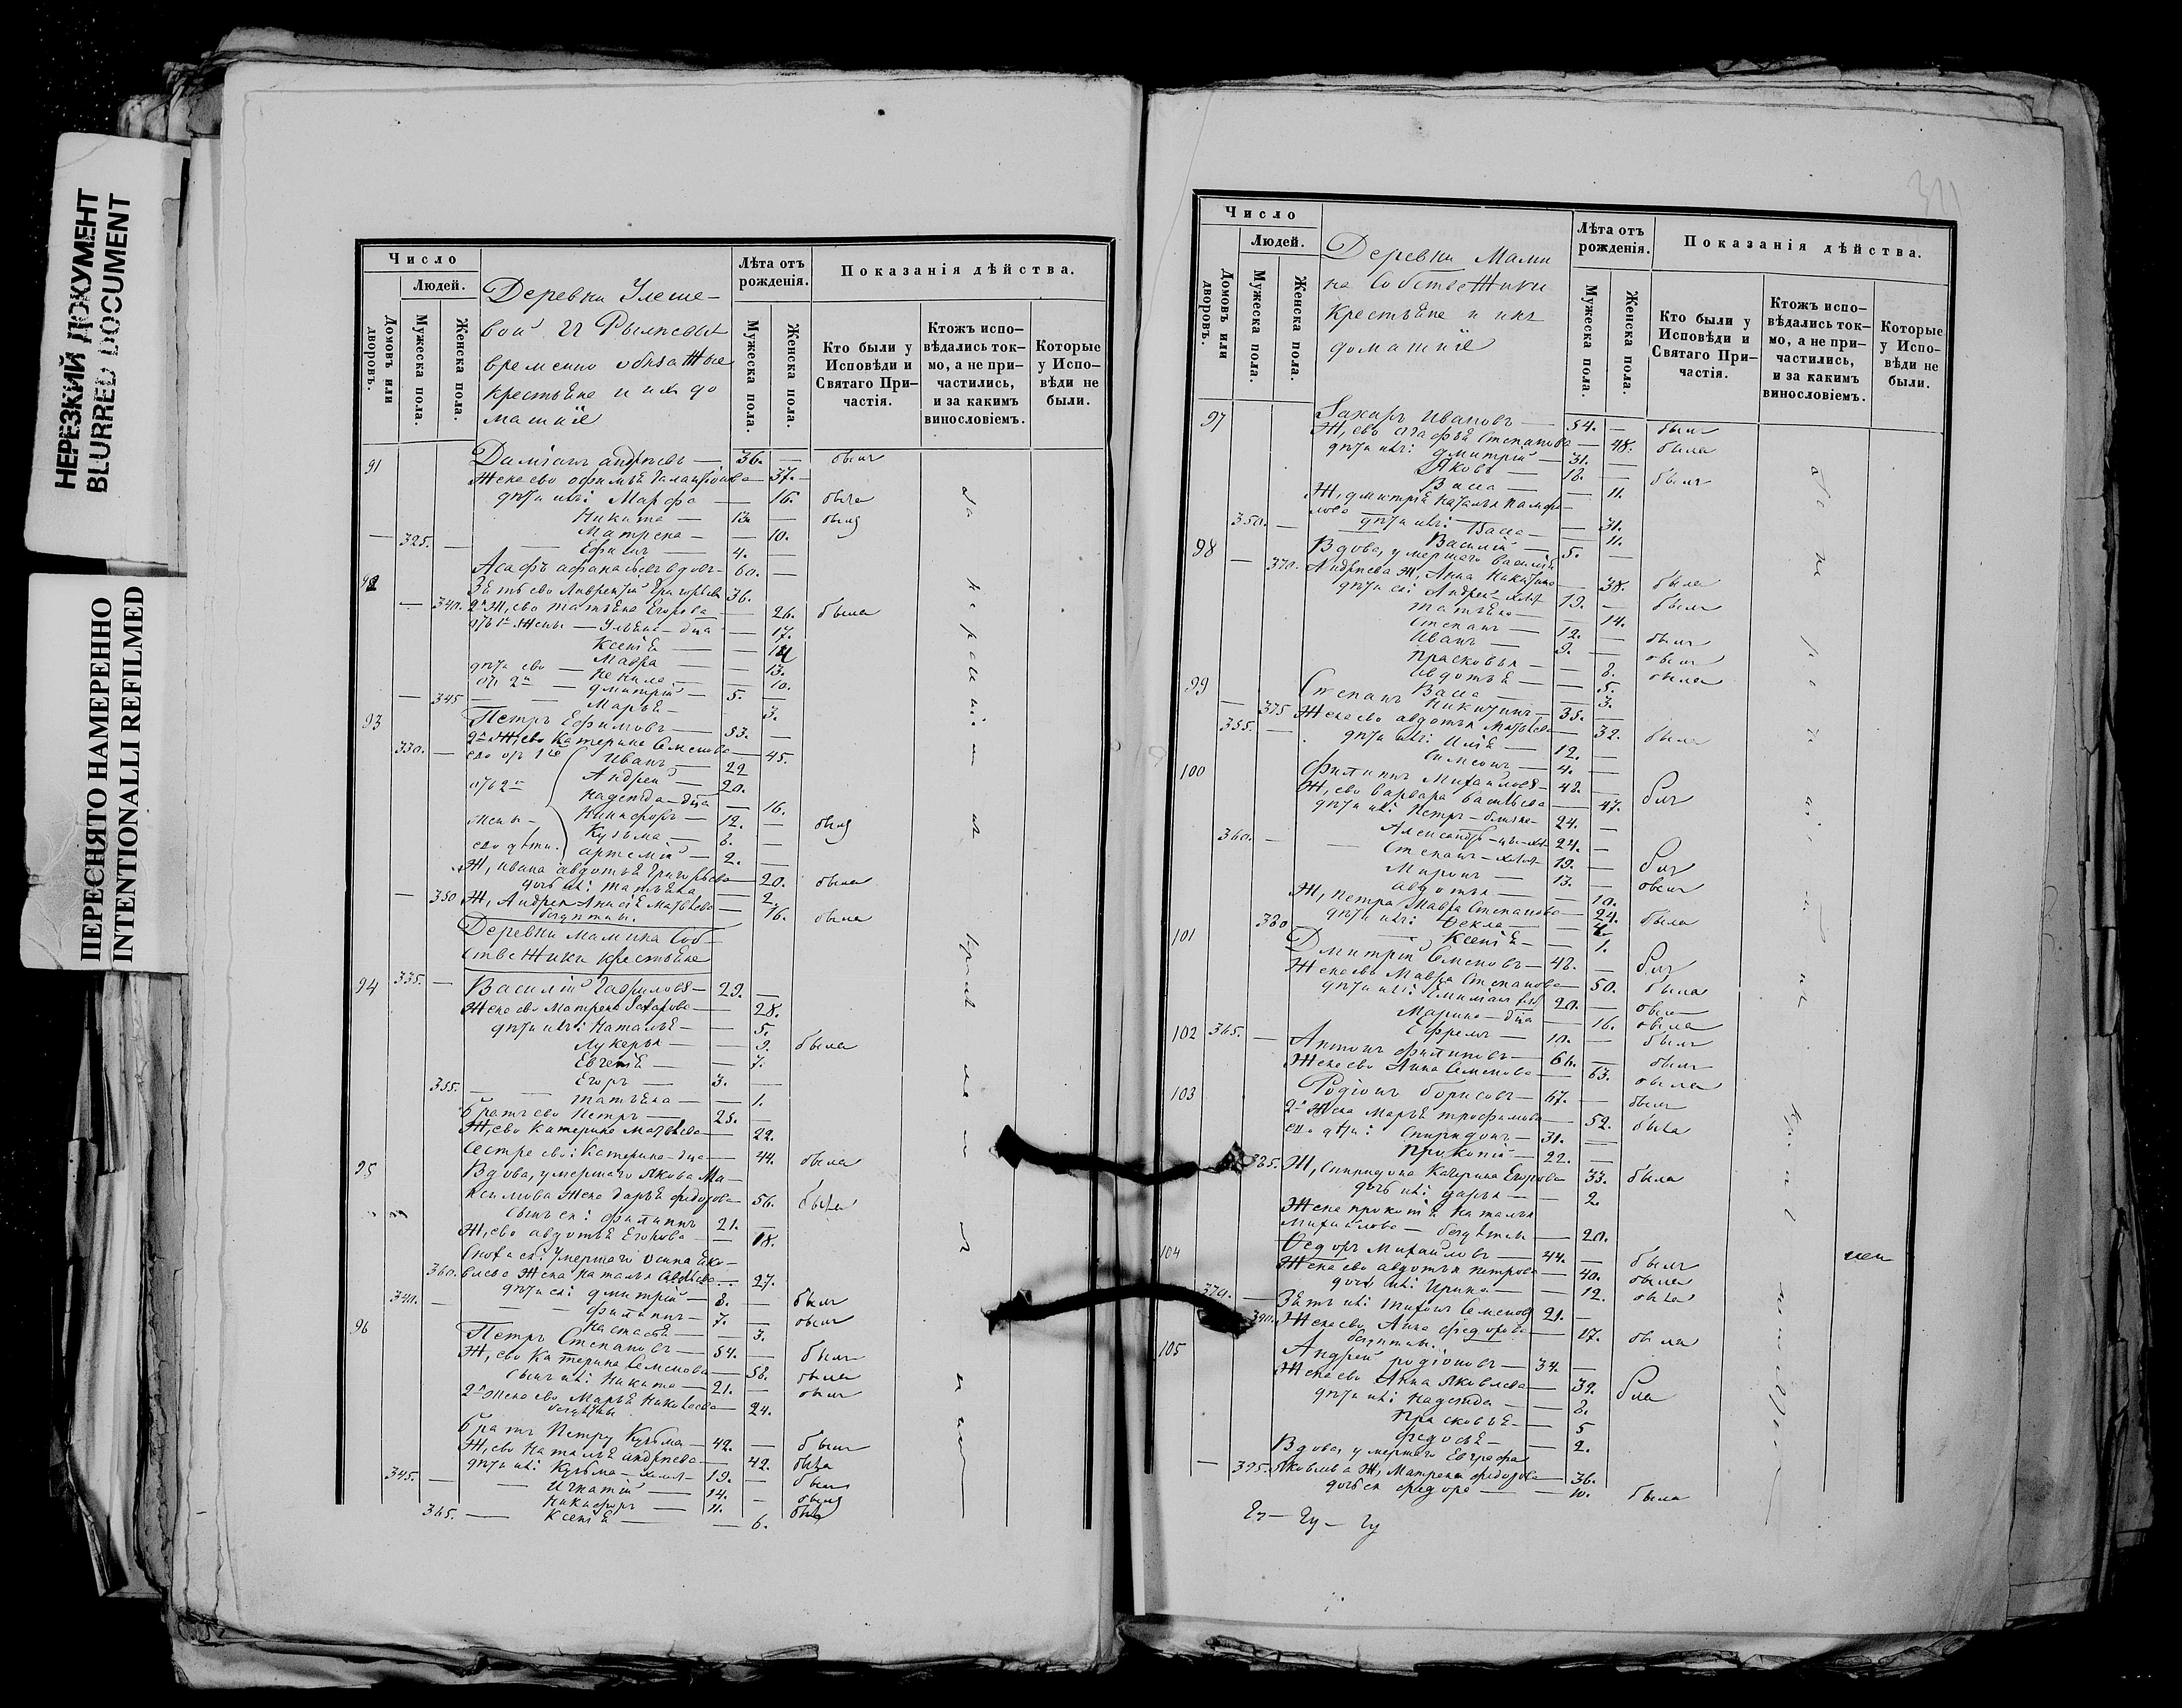 НЕРЕЗКИЙ ДОКУМЕНТ
BLURRED DOCUMENT
ПЕРЕСНЯТО НАМЕРЕННО
INTENTIONALLI REFILMED
Число
Людей.
Домовъ или дворовъ.
Мужеска пола.
Женска пола.
Деревни Улеше-
вой И
временно обязанные
крестьяне и ихъ до
машніе
Лѣта отъ рожденія.
Мужеска пола.
Женска пола.
Показанія дѣйства.
Кто были у Исповѣди и Святаго При-частія.
Ктожъ испо-вѣдались ток-мо, а не при-частились, и за какимъ винословіемъ.
Которые у Испо-вѣди не были.
91 Даміанъ Андреевъ — 36. — былъ
Жена ево Офимья — 37. —
дѣти ихъ: Марфа — 16. была
Никита — 13. — былъ
Матрена — — 10.
325. — Ефимъ — 4. —
Асафъ вдовъ — 60. —
Зять ево Лаврентій Григорьевъ 36.
340. 2я Ж, ево Татьяна Егорова — 26. была
Ульяна — дца — 17.
Ксенія —
Мавра — 13.
10.
345 Дмитрій — 5. —
Марья — 3.
93 Петръ Ефимовъ — 53. —
2я Ж, ево Катерина Семенова — 45.
330. — Иванъ — 22
Андрей — 20.
Надежда — дца — 16.
Никифоръ — 12. — былъ
Кузьма — 8. —
ево дѣти. Артемій — 2. —
Ж, Ивана Авдотья Григорьева — 20. была
дочь ихъ: Татьяна — 2.
350 Ж, Андрея Анисья Матвѣева — 16. была
бездѣтны.
Деревни Мамина Соб-
ственники крестьяне
94 335. — Василій Гавриловъ — 29. —
Жена ево Матрена Захарова — 28.
дѣти ихъ: Наталья — 5.
Лукерья — 9. была
Евгенія — 7.
Егоръ — 3. —
355. Татьяна — 1.
Братъ ево Петръ — 25. —
Ж, ево Катерина Матвѣева — 22.
Сестра ево: Катерина — дца — 44. была
95 Вдова, умершаго Якова Ма-
ксимова Жена Дарья Федорова — 56. была
сынъ ея: Филиппъ 21. —
Ж, ево Авдотья Егорова — 18.
Сноха ея: умершаго Осипа Яко-
360. влева Жена Наталья — 27.
дѣти ея: Дмитрій — 8. — былъ
340. — Филиппъ — 7. — былъ
Настасья — 3.
96 Петръ Степановъ — 54. — былъ
Ж, ево Катерина Семенова — 58. была
сынъ ихъ: Никита — 21. — былъ
2я Жена ево Марья Николаева — 24.
бездѣтны
Братъ Петру Кузьма — 42. — былъ
Ж, ево Наталья Андреева — 42. была
дѣти ихъ: Кузьма — холост — 19. — былъ
345. — Игнатій — 14. — былъ
Никифоръ — 11. былъ
365. — Ксенія — 6.
311
Число
Людей.
Домовъ или дворовъ.
Мужеска пола.
Женска пола.
Деревни Мами
на Собственники
крестьяне и ихъ
домашніе
Лѣта отъ рожденія.
Мужеска пола.
Женска пола.
Показанія дѣйства.
Кто были у Исповѣди и Святаго При-частія.
Ктожъ испо-вѣдались ток-мо, а не при-частились, и за какимъ винословіемъ.
Которые у Испо-вѣди не были.
97 Захаръ Ивановъ — 54. — былъ
Ж, ево Агафья Степанова — 48. была
дѣти ихъ: Дмитрій — 31. —
Яковъ — 18. — былъ
Васса — 11.
Ж, Дмитрія Наталья Памфи-
350. — лова — 31.
дѣти ихъ: Васса — 11.
Василій — 5. —
98 Вдова, умершаго Василія
370. Андреева Ж, Анна Никитина — 38. была
дѣти ея: Андрей — холост 19. — былъ
Татьяна — 14.
Степанъ — 12. — былъ
Иванъ — 9. — былъ
Прасковья — 8. была
Авдотья — 5.
Васса — 3.
99 Степанъ Никитинъ — 35. —
375 Жена ево Авдотья Матвѣева — 32. была
355. — дѣти ихъ: Илія — 12. —
Симеонъ — 4. —
100 Филиппъ Михайловъ — 48. — былъ
Ж, ево Варвара Васильева — 47.
дѣти ихъ: Петръ — 24. —
360. — Александръ — 24. —
Степанъ — холост — 19. — былъ
Миронъ — 13. — былъ
Авдотья — 10.
Ж, Петра Мавра Степанова — 24. была
380 дѣти ихъ: Фекла —
Ксенія — 1.
101 Дмитрій Семеновъ — 48. — былъ
Жена ево Мавра Степанова — 50. была
дѣти ихъ: Емиліанъ 20. — былъ
Марина — дца — 16. была
Ефремъ — 10. — былъ
102 365. — Антонъ Филиповъ — 66. — былъ
Жена ево Анна Семенова — 63. была
103 Родіонъ Борисовъ — 67. — былъ
2я Жена Марья Трофимова — 52. была
ево дѣти: Спиридонъ — 31. —
Прокопій — 22. —
385. Ж, Спиридона Катерина Егорова 33. была
дочь ихъ: Дарья — 2.
Жена Прокопія Наталья
Михайлова — бездѣтны — 20.
104 Федоръ Михайловъ — 44. — былъ
Жена ево Авдотья Петрова — 40. была
дочь ихъ: Ирина — 12. была
370. — Зять ихъ: Тихонъ Семеновъ 21. —
390. Жена ево Анна Федорова — 17. была
бездѣтны.
105 Андрей Родіоновъ — 34. —
Жена ево Анна Яковлева — 32. была
дѣти ихъ: Надежда — 8.
Прасковья — 5
Федосья — 2.
Вдова, умершаго Евграфа
395. Яковлева Ж, Матрена Федорова — 36.
дочь ея Федора — 10. была